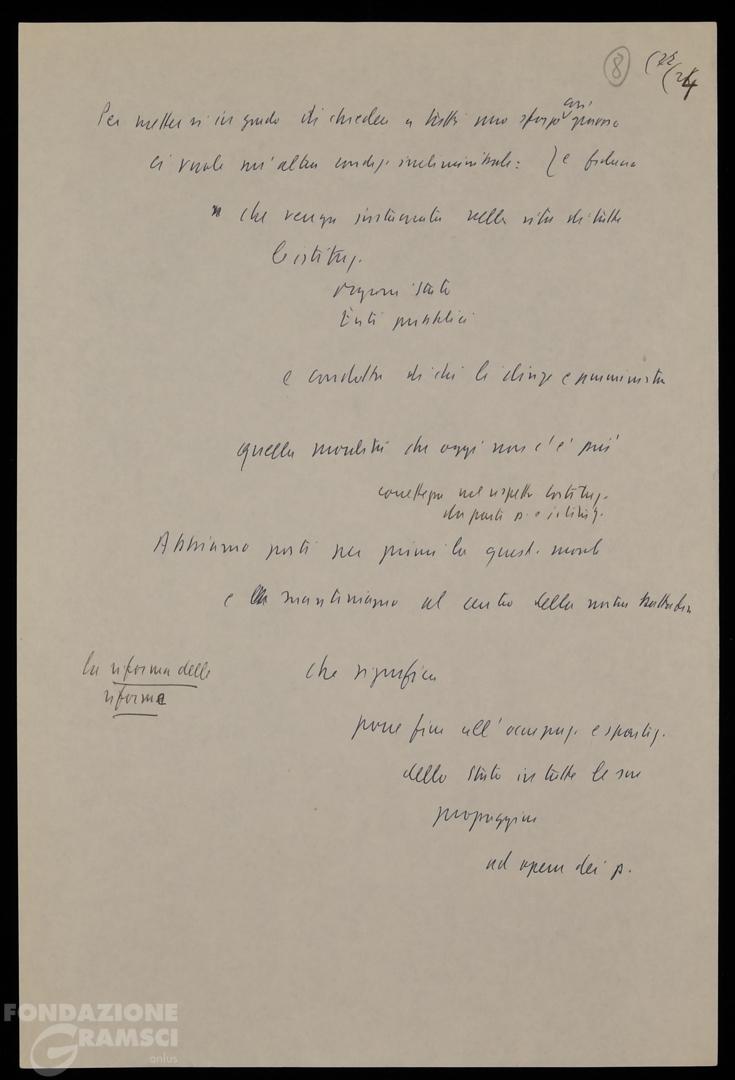 8
(24
Per mettersi in grado di chiedere a tutti uno sforzo così
ci vuole un'altra condiz. ineliminabile: } e fiducia
che venga instaurata nella vita di tutte
le istituz.
organi Stato
Enti pubblici
e condotta di chi li dirige e amministra
quella moralità che oggi non c'è più
nel rispetto Costituz.
da parte p. e istituz.
Abbiamo posti per primi la quest. morale
e la manteniamo al centro della nostra battaglia
la riforma delle
riforme
che significa
porre fine all'occupaz. e spartiz.
dello Stato in tutte le sue
propaggini
ad opera dei p.
FONDAZIONE
GRAMSCI
onlus